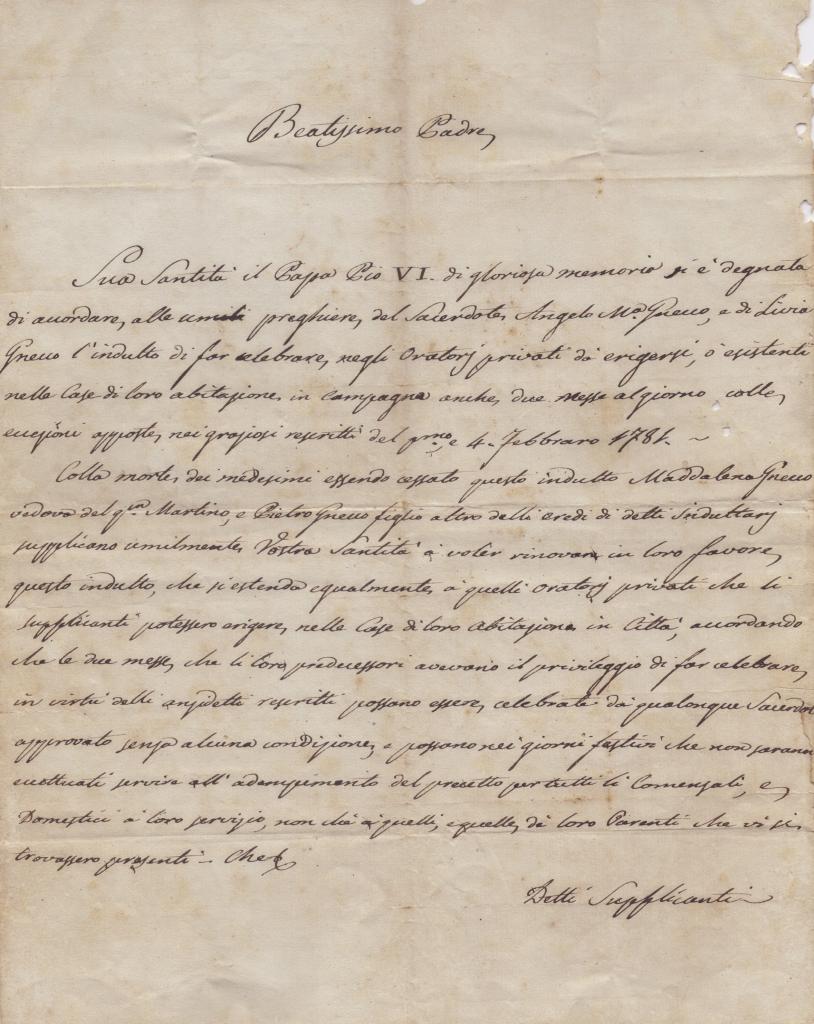 Beatissimo Padre,
Sua Santità il Papa Pio VI. di gloriosa memoria si è degnata
di accordare, alle umili preghiere, del Sacerdote, Angelo Mª Gnecco, e di Livia
Gnecco l'indulto di far celebrare, negli Oratorj privati da erigersi, ò esistenti
nelle Case di loro abitazione, in campagna anche, due messe al giorno colle,
eccezioni apposte, nei graziosi rescritti del pmo, e 4. Febbraro 1781. ~
Colla morte, dei medesimi essendo cessato questo indulto Maddalena Gnecco
vedova del qm Martino, e Pietro Gnecco figlio altro delli eredi di detti Indultarj
supplicano umilmente, Vostra Santità à voler rinovare in loro favore,
questo indulto, che si estenda egualmente, à quelli Oratorj privati che li
supplicanti potessero erigere, nelle Case di loro abitazione in Città, accordando
che le due messe, che li loro predecessori avevano il privileggio di far celebrare,
in virtù delli anzidetti rescritti possano essere, celebrate da qualonque Sacerdote
approvato senza alcuna condizione, e possano nei giorni festivi che non saranno
eccettuati servire all' adempimento del precetto per tutti li Comensali, e,
Domestici à loro servizio, non chè à quelli, e quelle, de loro Parenti che vi si
trovassero presenti - Che
Detti Supplicanti